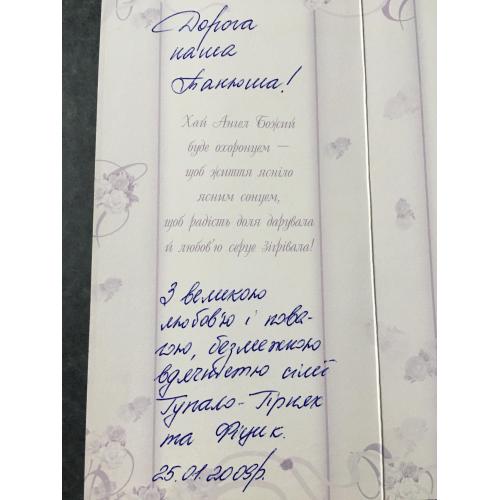 Дорога
наша
Танюша!
Хай Ангел Божий
буде охоронцем —
щоб життя ясніло
ясним сонцем,
щоб радість доля дарувала
й любов'ю серце зігрівала!
З великою
любов'ю і пова-
гою, безмежною
вдячністю сім'ї
Гупало-Гірняк
та Фіцик.
25.01.2009р.